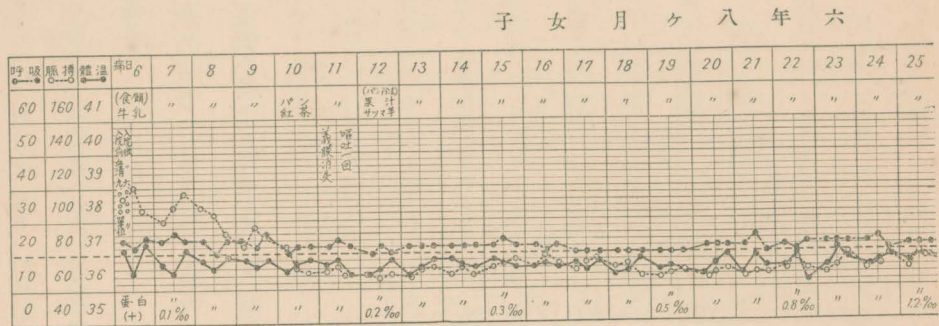 子女月ヶ八年六
呼吸 脈搏 體溫 病日 6 7 8 9 10 11 12 13 14 15 16 17 18 19 20 21 22 23 24 25
60 160 41 (食餌) 牛乳 〃 〃 〃 パン 紅茶 〃 果汁 サツマ芋 〃 〃 〃 〃 〃 〃 〃 〃 〃 〃 〃 〃 〃
50 140 40 義膜消失 嘔吐一回
40 120 39
30 100 38
20 80 37
10 60 36
0 40 35 蛋白 (+) 〃 0.1‰ 〃 〃 〃 〃 〃 0.2‰ 〃 〃 〃 0.3‰ 〃 〃 〃 〃 0.5‰ 〃 〃 〃 0.8‰ 〃 〃 〃 1.2‰